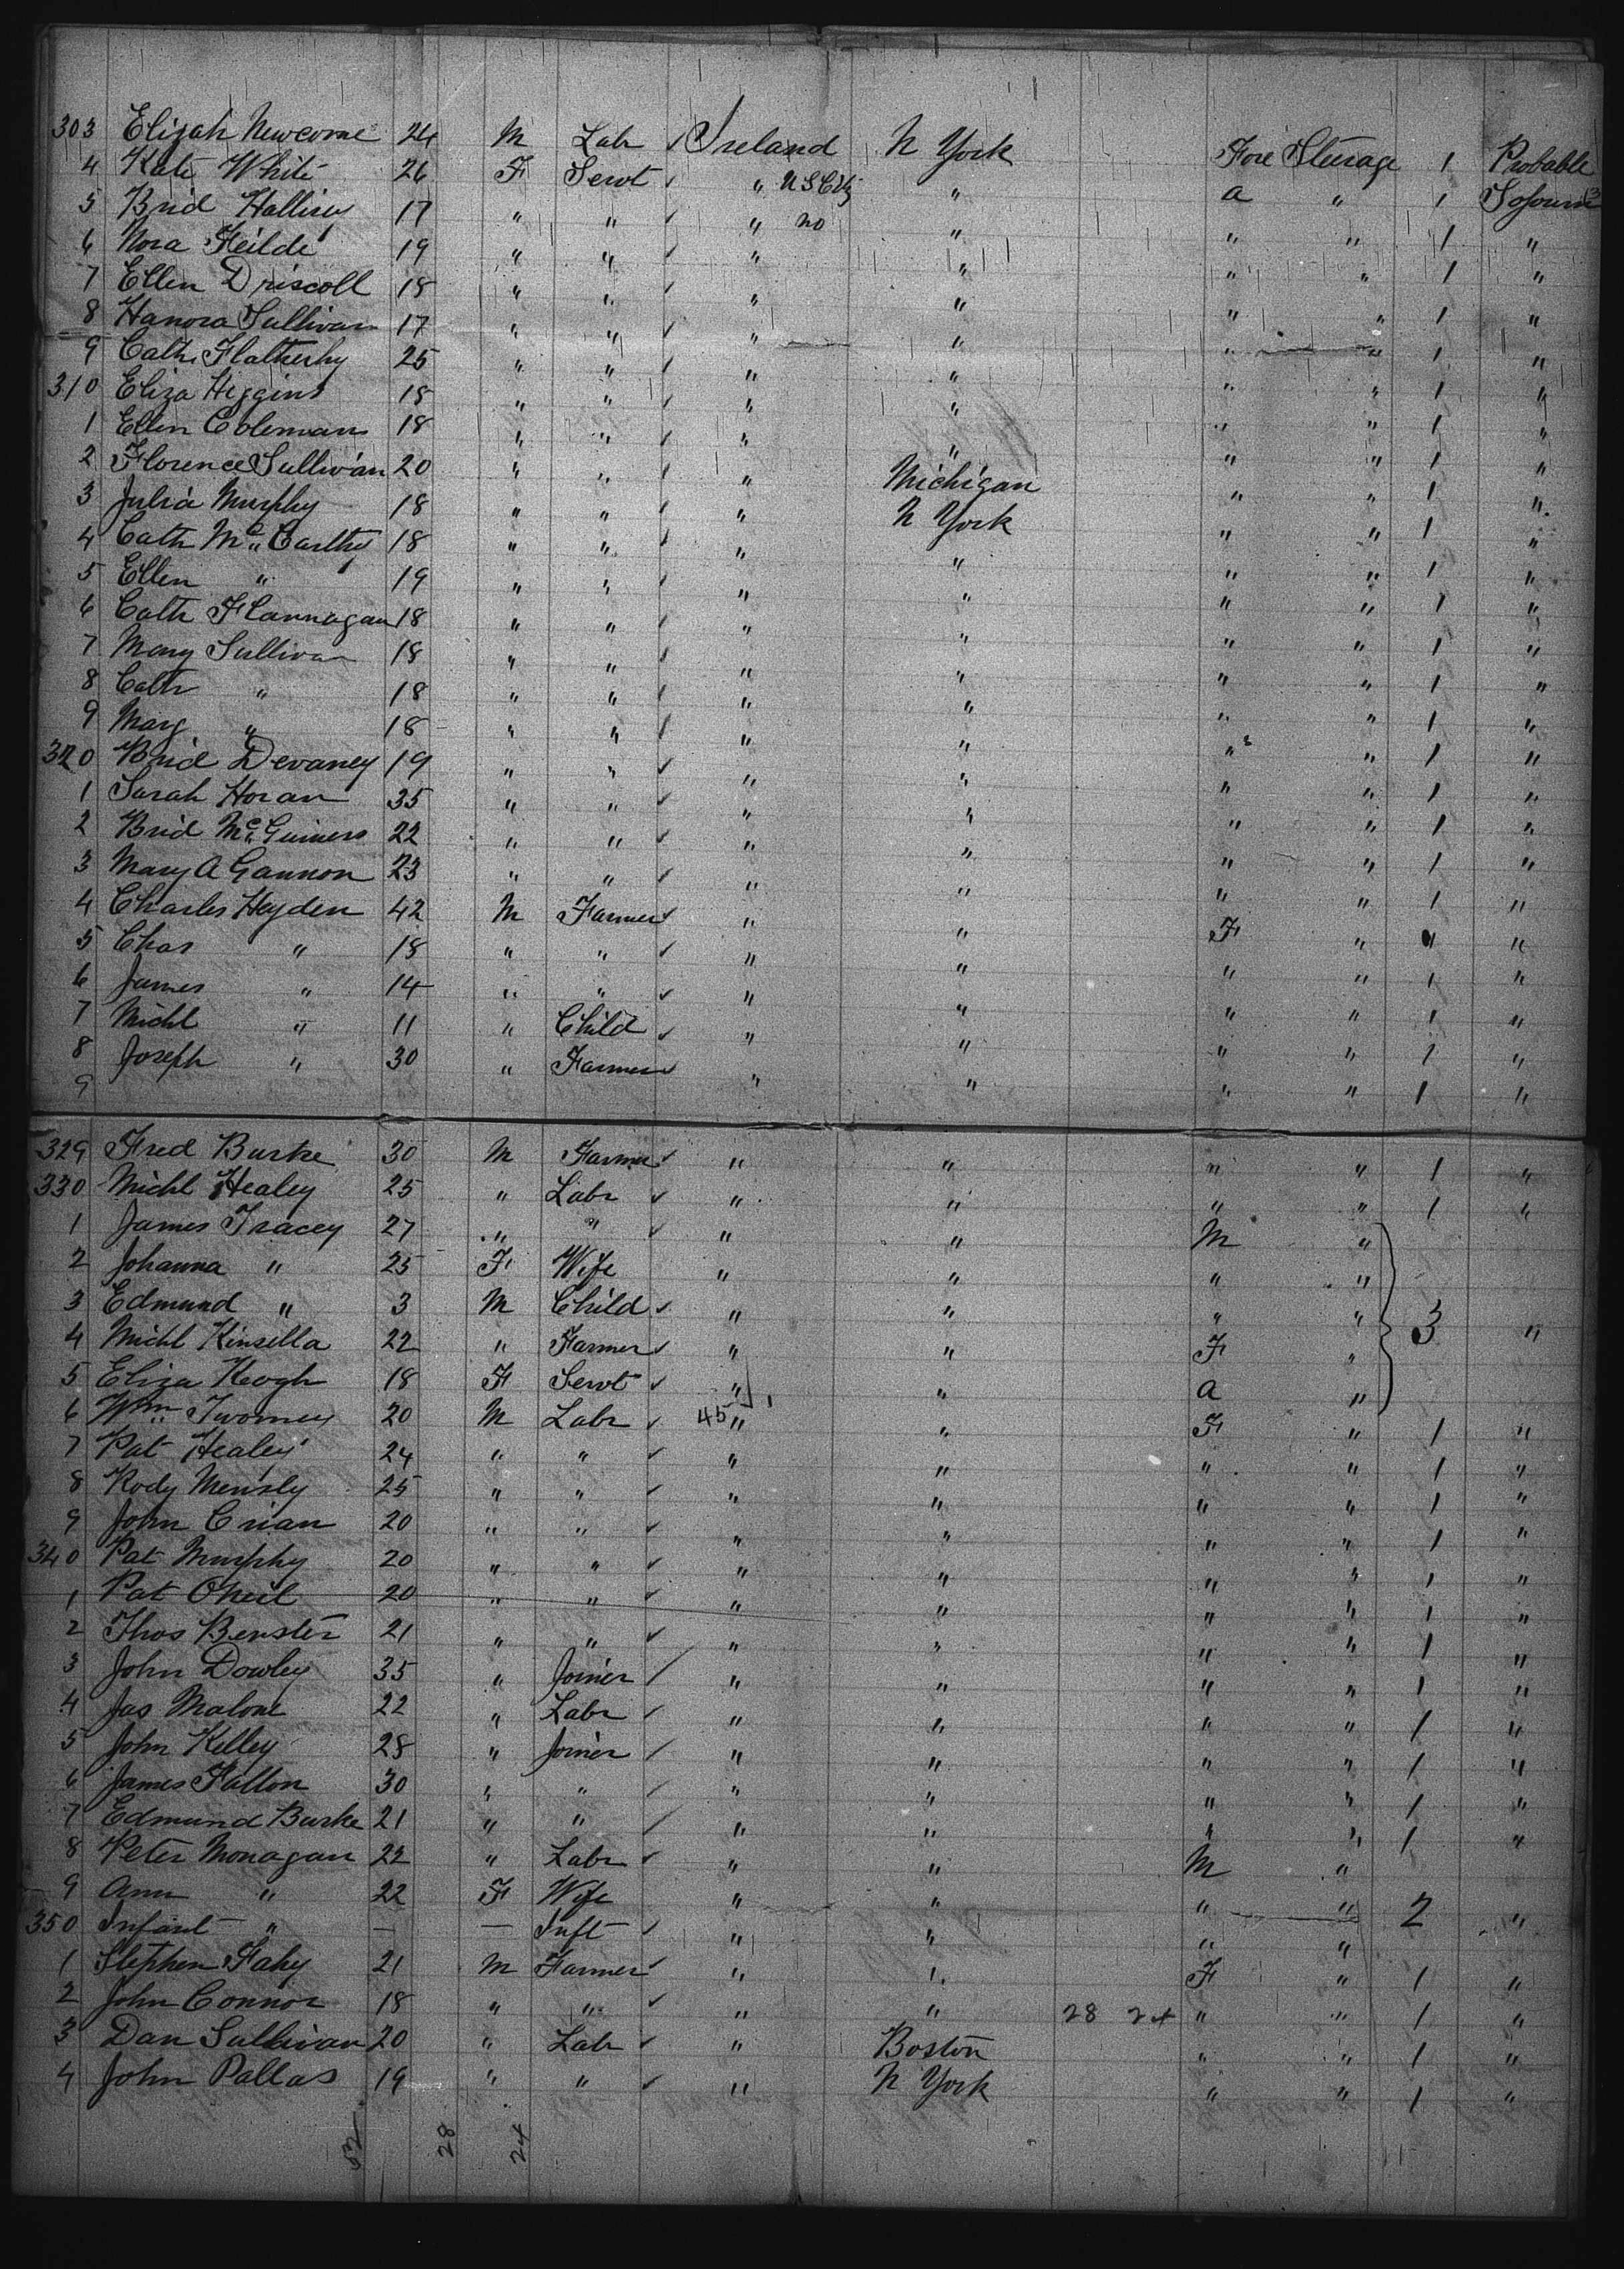 303 Elijah Newcome 24 M Labr ✓ Ireland N York Fore Steerage 1 Probable
4 Kate White 26 F Servt ✓ " U S Citz " a " 1 Sojourn
5 Brid Hallisy 17 " " ✓ " no " " " 1 "
6 Nora Feilde 19 " " ✓ " " " " 1 "
7 Ellen Driscoll 18 " " ✓ " " " " 1 "
8 Hanora Sullivan 17 " " ✓ " " " " 1 "
9 Cath Flatherhy 25 " " ✓ " " " " 1 "
310 Eliza Higgins 18 " " ✓ " " " " 1 "
1 Ellen Coleman 18 " " ✓ " " " " 1 "
2 Florence Sullivan 20 " " ✓ " Michigan " " 1 "
3 Julia Murphy 18 " " ✓ " N York " " 1 "
4 Cath McCarthy 18 " " ✓ " " " " 1 "
5 Ellen " 19 " " ✓ " " " " 1 "
6 Cath Flannagan 18 " " ✓ " " " " 1 "
7 Mary Sullivan 18 " " ✓ " " " " 1 "
8 Cath " 18 " " ✓ " " " " 1 "
9 Mary " 18 " " ✓ " " " " 1 "
320 Brid Devaney 19 " " ✓ " " " " 1 "
1 Sarah Horan 35 " " ✓ " " " " 1 "
2 Brid McGuiness 22 " " ✓ " " " " 1 "
3 Mary A Gannon 23 " " ✓ " " " " 1 "
4 Charles Heyden 42 M Farmer ✓ " " F " "
5 Chas " 18 " " ✓ " " " " 1 "
6 James " 14 " " ✓ " " " " 1 "
7 Michl " 11 " Child ✓ " " " " 1 "
8 Joseph " 30 " Farmer ✓ " " " " 1 "
9
329 Fred Burke 30 M Farmer ✓ " " " " 1 "
330 Michl Healey 25 " Labr ✓ " " " " 1 "
1 James Tracey 27 " " ✓ " " M "
2 Johanna " 25 F Wife " " " "
3 Edmund " 3 M Child ✓ " " " " 3 "
4 Michl Kinsella 22 " Farmer ✓ " " F "
5 Eliza Keogh 18 F Servt ✓ " " a "
6 Wm Twomey 20 M Labr ✓ 45 " " F " 1 "
7 Pat Healey 24 " " ✓ " " " " 1 "
8 Rody 25 " " ✓ " " " " 1 "
9 John Crian 20 " " ✓ " " " " 1 "
340 Pat Murphy 20 " " ✓ " " " " 1 "
1 Pat ONeil 20 " " ✓ " " " " 1 "
2 Thos Benster 21 " " ✓ " " " " 1 "
3 John Dowley 35 " Joiner / " " " " 1 "
4 Jas Malone 22 " Labr ✓ " " " " 1 "
5 John Kelley 28 " Joiner / " " " " 1 "
6 James Fallon 30 " " / " " " " 1 "
7 Edmund Burke 21 " " / " " " " 1 "
8 Peter Monagan 22 " Labr ✓ " " M "
9 Ann " 22 F Wife " " " " 2 "
350 Infant " — — Inft ✓ " " " "
1 Stephen Fahy 21 M Farmer ✓ " " F " 1 "
2 John Connor 18 " " ✓ " " 28 24 " " 1 "
3 Dan Sullivan 20 " Labr ✓ " Boston " " 1 "
4 John Pallas 19 " " ✓ " N York " " 1 "
52 28 24